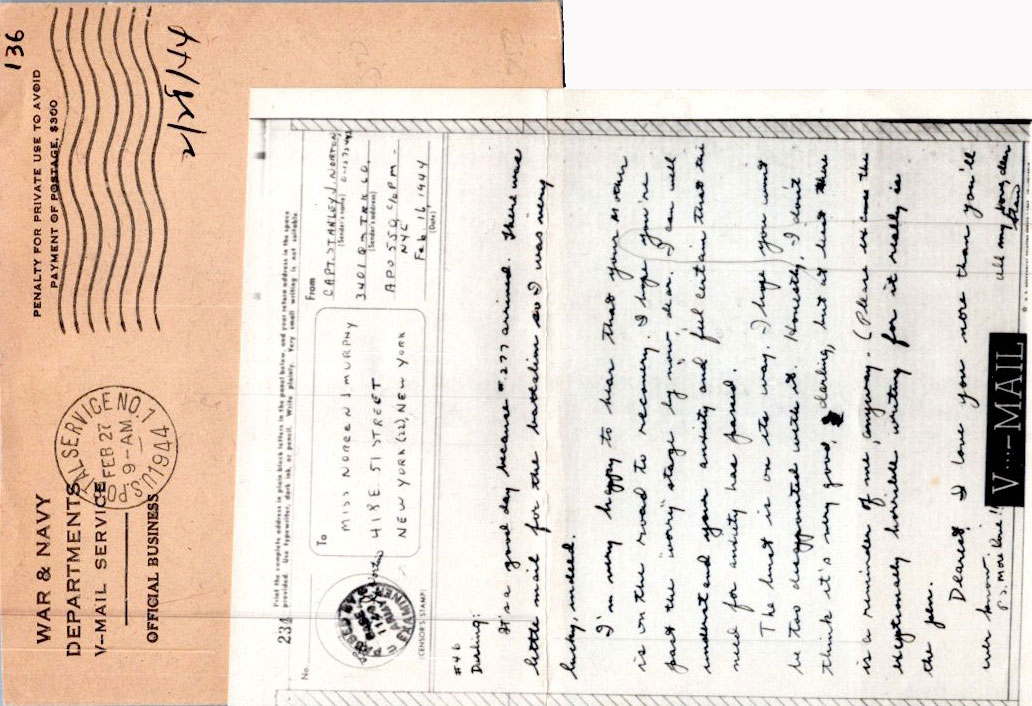 136
PENALTY FOR PRIVATE USE TO AVOID
PAYMENT OF POSTAGE, $300
2/28/44
U.S. POSTAL SERVICE NO. 1
FEB 27
9-AM
1944
WAR & NAVY
DEPARTMENTS
V-MAIL SERVICE
OFFICIAL BUSINESS
Print the complete address in plain block letters in the panel below, and your return address in the space
provided. Use typewriter, dark ink, or pencil. Write plainly. Very small writing is not suitable.
234
No.
To
MISS NOREEN J. MURPHY
418 E. 51 STREET
NEW YORK (22), NEW YORK
From
CAPT. STANLEY J. NORTON
(Sender's name)
3401 QM TRK CO.
(Sender's address)
APO 550 c/o PM-
NYC
Feb. 16 1944
(Date)
ARMY EXAMINER
(CENSOR'S STAMP)
#46
Darling:
It's a good day because #277 arrived. There was
little mail for the battalion so I was very
lucky, indeed.
I'm very happy to hear that your mother
is on the road to recovery. I hope you're
past the "worry" stage by now, dear. I can well
understand your anxiety and feel certain that the
need for anxiety has passed.
The bust is on its way. I hope you won't
be too disappointed with it. Honestly, I don't
think it's very good, darling, but at least there
is a reminder of me, anyway. (Please excuse this
exceptionally horrible writing for it really is
the pen.
Dearest I love you more than you'll
ever know.
All my love, dear
Stan
P.S. More love!
V···–MAIL